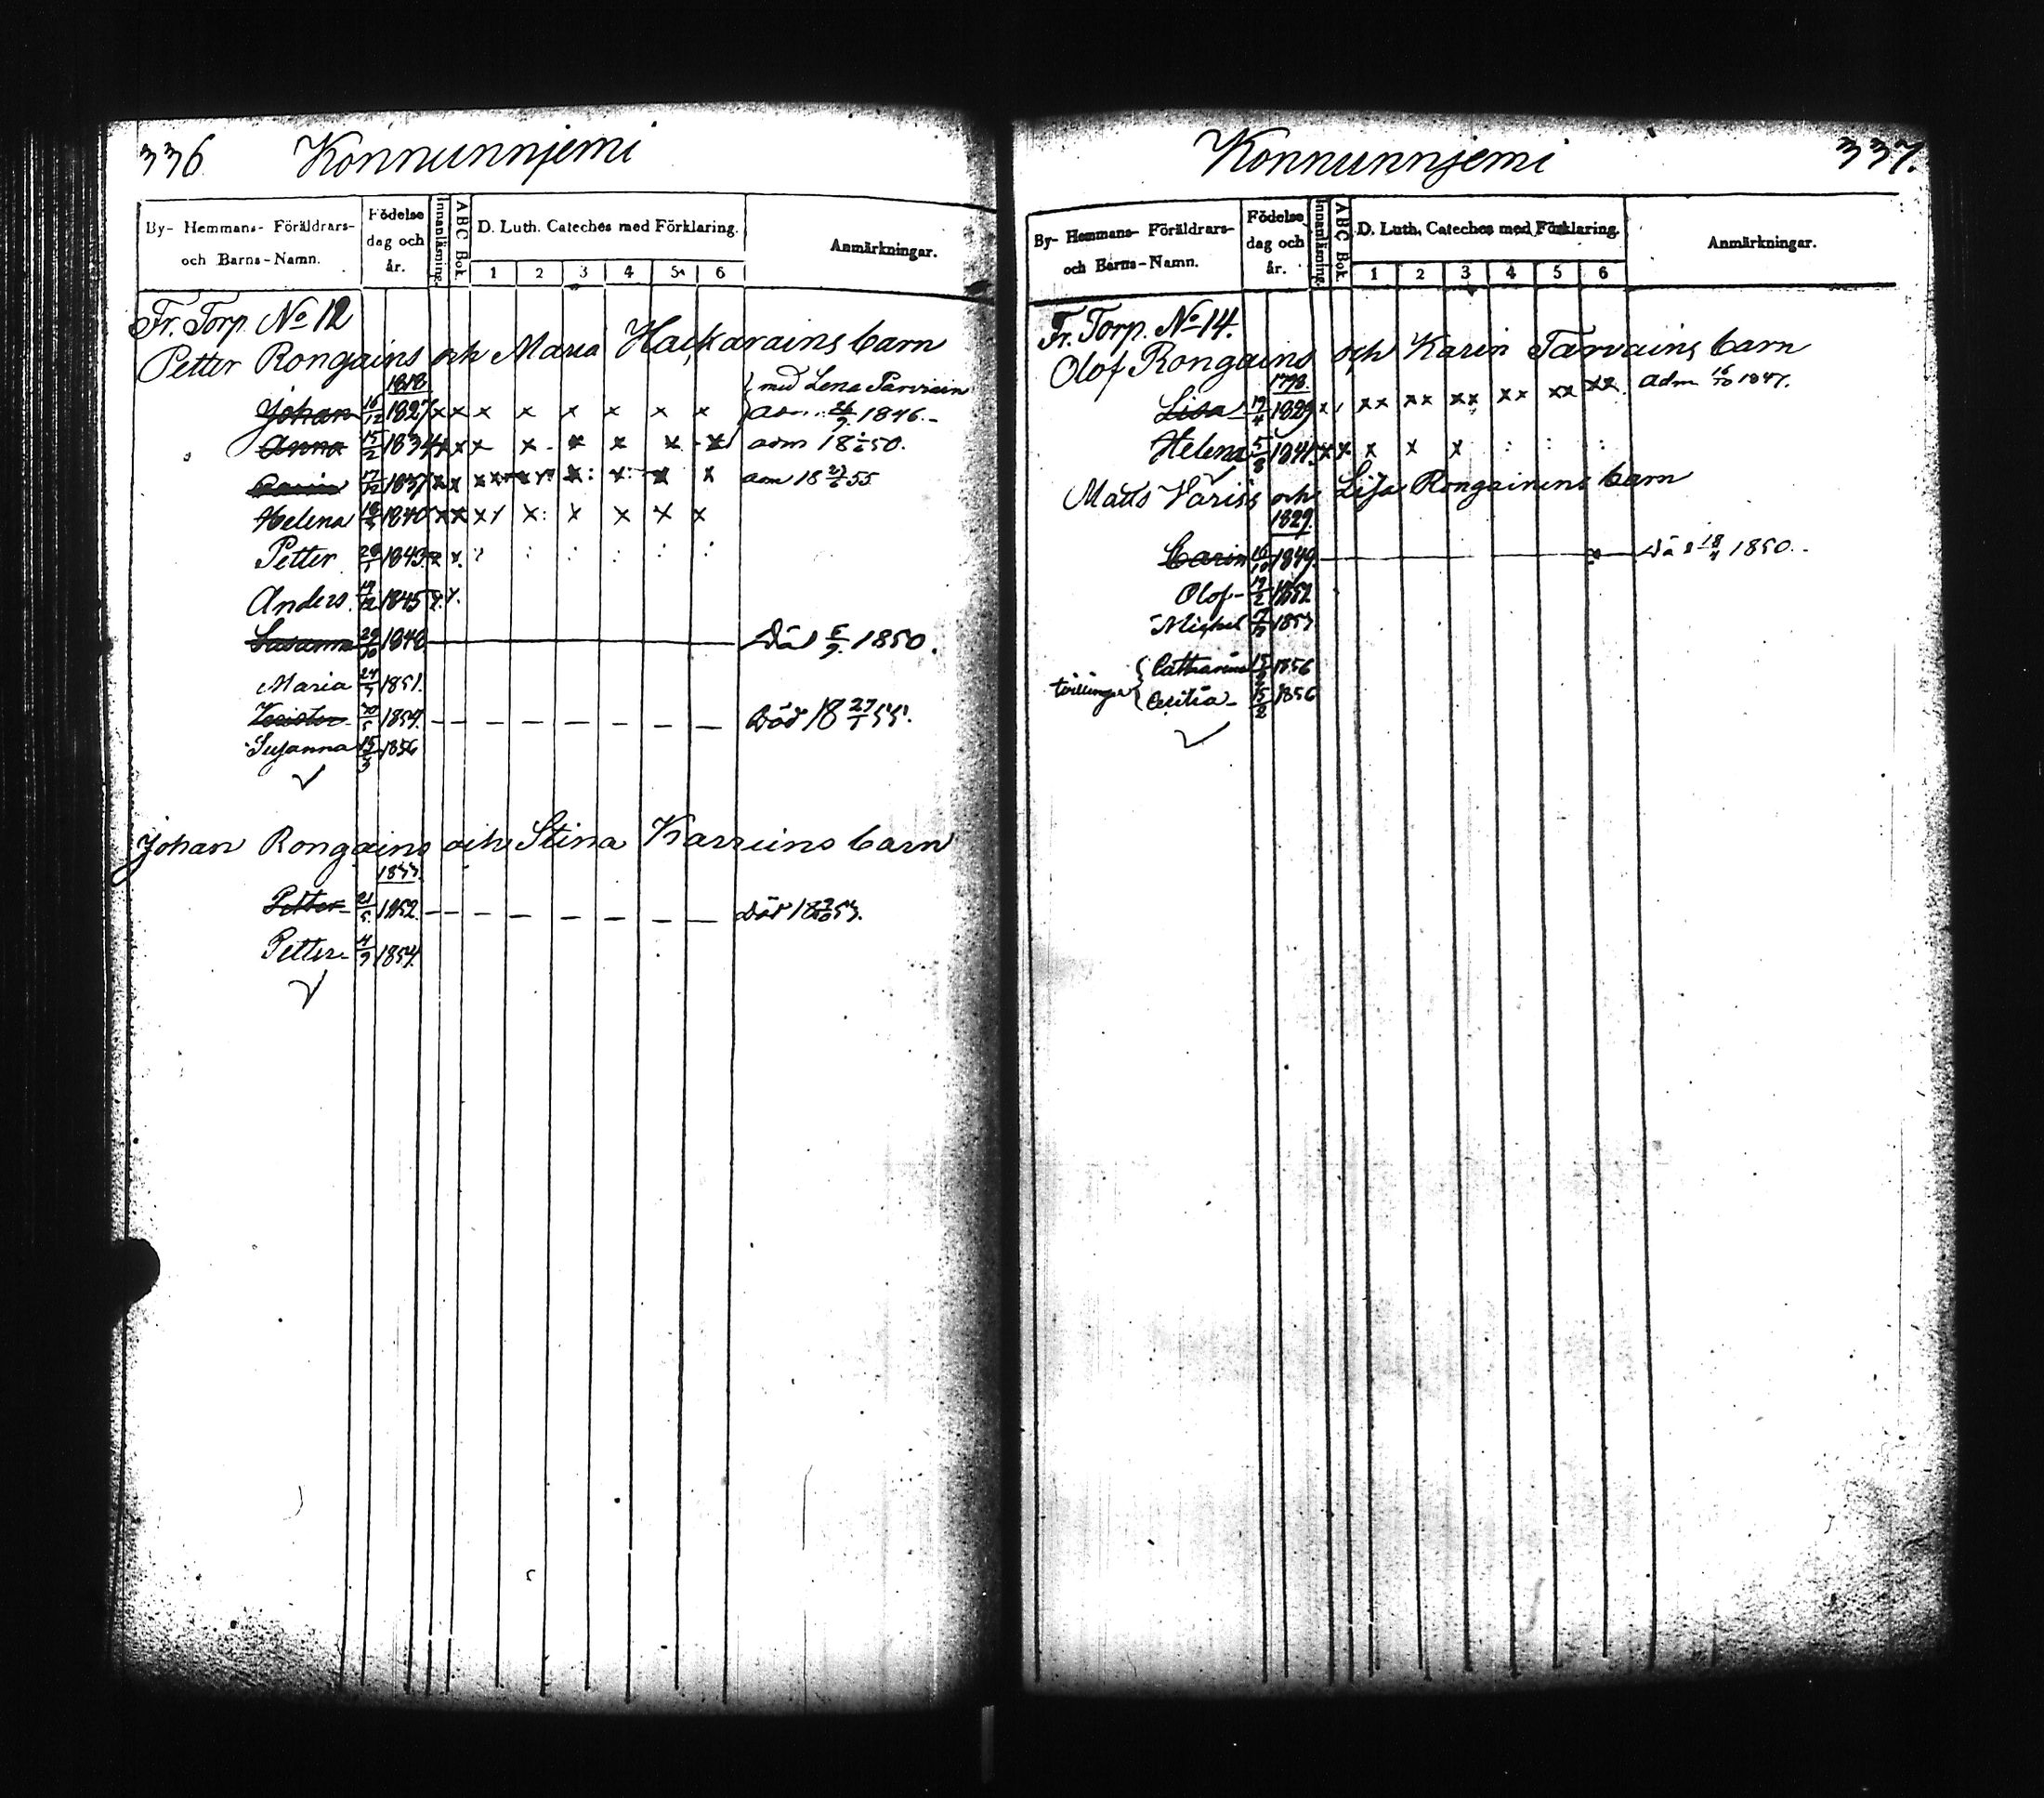 336 Konnunnjemi
By- Hemmans- Föräldrars- och Barns-Namn. Födelse dag och år. Innanläsning. ABC Bok. D. Luth. Cateches med Förklaring. 1 2 3 4 5 6 Anmärkningar.
Fr. Torp. No 12
Petter Rongains och Maria Hackarains barn
1818 med Lena Parviain
Johan 16/12 1827 x x x x x x x x 26/9 1846.
Anna 15/2 1834 adm 18 50.
17/12 1837 adm 18 55
Helena 1840 x x x x: x x x x
Petter 1843
Anders 1845
Susanna 29/10 1848 Död 1850.
Maria 24/5 1851.
1854. Död 18 27/1 55.
Susanna 15/3 1856
Johan Rongains och Stina Karreins barn
Petter 21/5 1852. Död 18 53.
Petter 4/9 1854.
Konnunnjemi 337.
By- Hemmans- Föräldrars- och Barns-Namn. Födelse dag och år. Innanläsning. ABC Bok. D. Luth. Cateches med Förklaring. 1 2 3 4 5 6 Anmärkningar.
Fr. Torp. No 14.
Olof Rongains och Karin Tarvains barn
1798.
Lisa 17/4 1829 xx xx xx xx xx xx adm 16/10 1847.
Helena 5/8 1841 x x x x x : : :
Matts Väriss och Lisa Rongainens barn
1829.
Carin 16/10 1849. 1850.
Olof 17/2 1852
Michel 1853
tvillingar Catharina 15/2 1856
Cecilia 15/2 1856